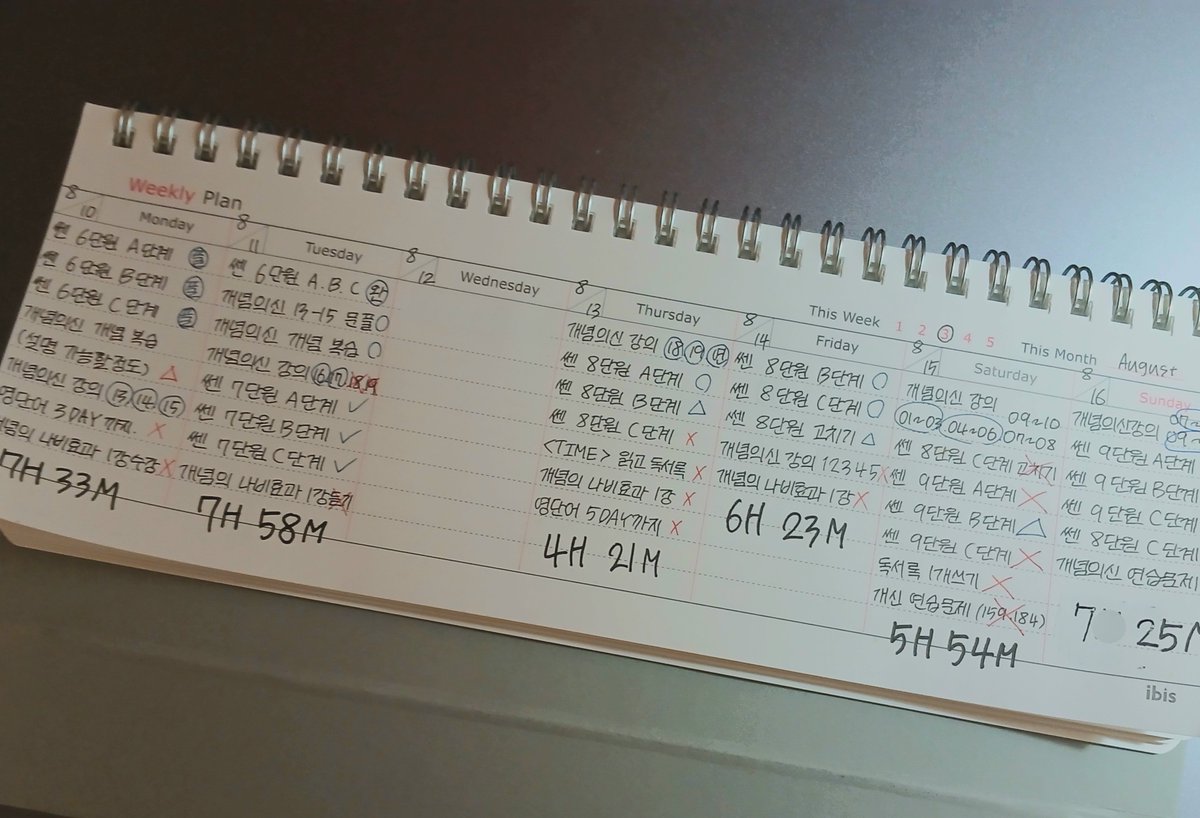 Weekly Plan
This Week 1 2 ③ 4 5 This Month August
8 10 Monday
쎈 6단원 A단계
쎈 6단원 B단계
쎈 6단원 C단계
개념의신 개념 복습
(설명 가능할정도) △
개념의신 강의 ⑬ ⑭ ⑮
영단어 3DAY까지 X
개념의 나비효과 1강수강 X
7H 33M
8 11 Tuesday
쎈 6단원 A.B.C 완
개념의신 13-15 문풀 O
개념의신 개념 복습 O
개념의신 강의 ⑯ ⑰ 18 19
쎈 7단원 A단계 ✓
쎈 7단원 B단계 ✓
쎈 7단원 C단계 ✓
개념의 나비효과 1강듣기
7H 58M
8 12 Wednesday
8 13 Thursday
개념의신 강의 ⑱ ⑲
쎈 8단원 A단계 O
쎈 8단원 B단계 △
쎈 8단원 C단계 X
<TIME> 읽고 독서록 X
개념의 나비효과 1강 X
영단어 5DAY까지 X
4H 21M
8 14 Friday
쎈 8단원 B단계 O
쎈 8단원 C단계 O
쎈 8단원 고치기 △
개념의신 강의 1 2 3 4 5 X
개념의 나비효과 1강 X
6H 23M
8 15 Saturday
개념의신 강의
01~03 04~06 07~08 09~10
쎈 8단원 C단계 고치기
쎈 9단원 A단계 X
쎈 9단원 B단계 △
쎈 9단원 C단계 X
독서록 1개쓰기 X
개신 연습문제 (159~184)
5H 54M
8 16 Sunday
개념의신강의
쎈 9단원 A단계
쎈 9단원 B단계
쎈 9단원 C단계
쎈 8단원 C단계
개념의신 연습문제
7 25M
ibis